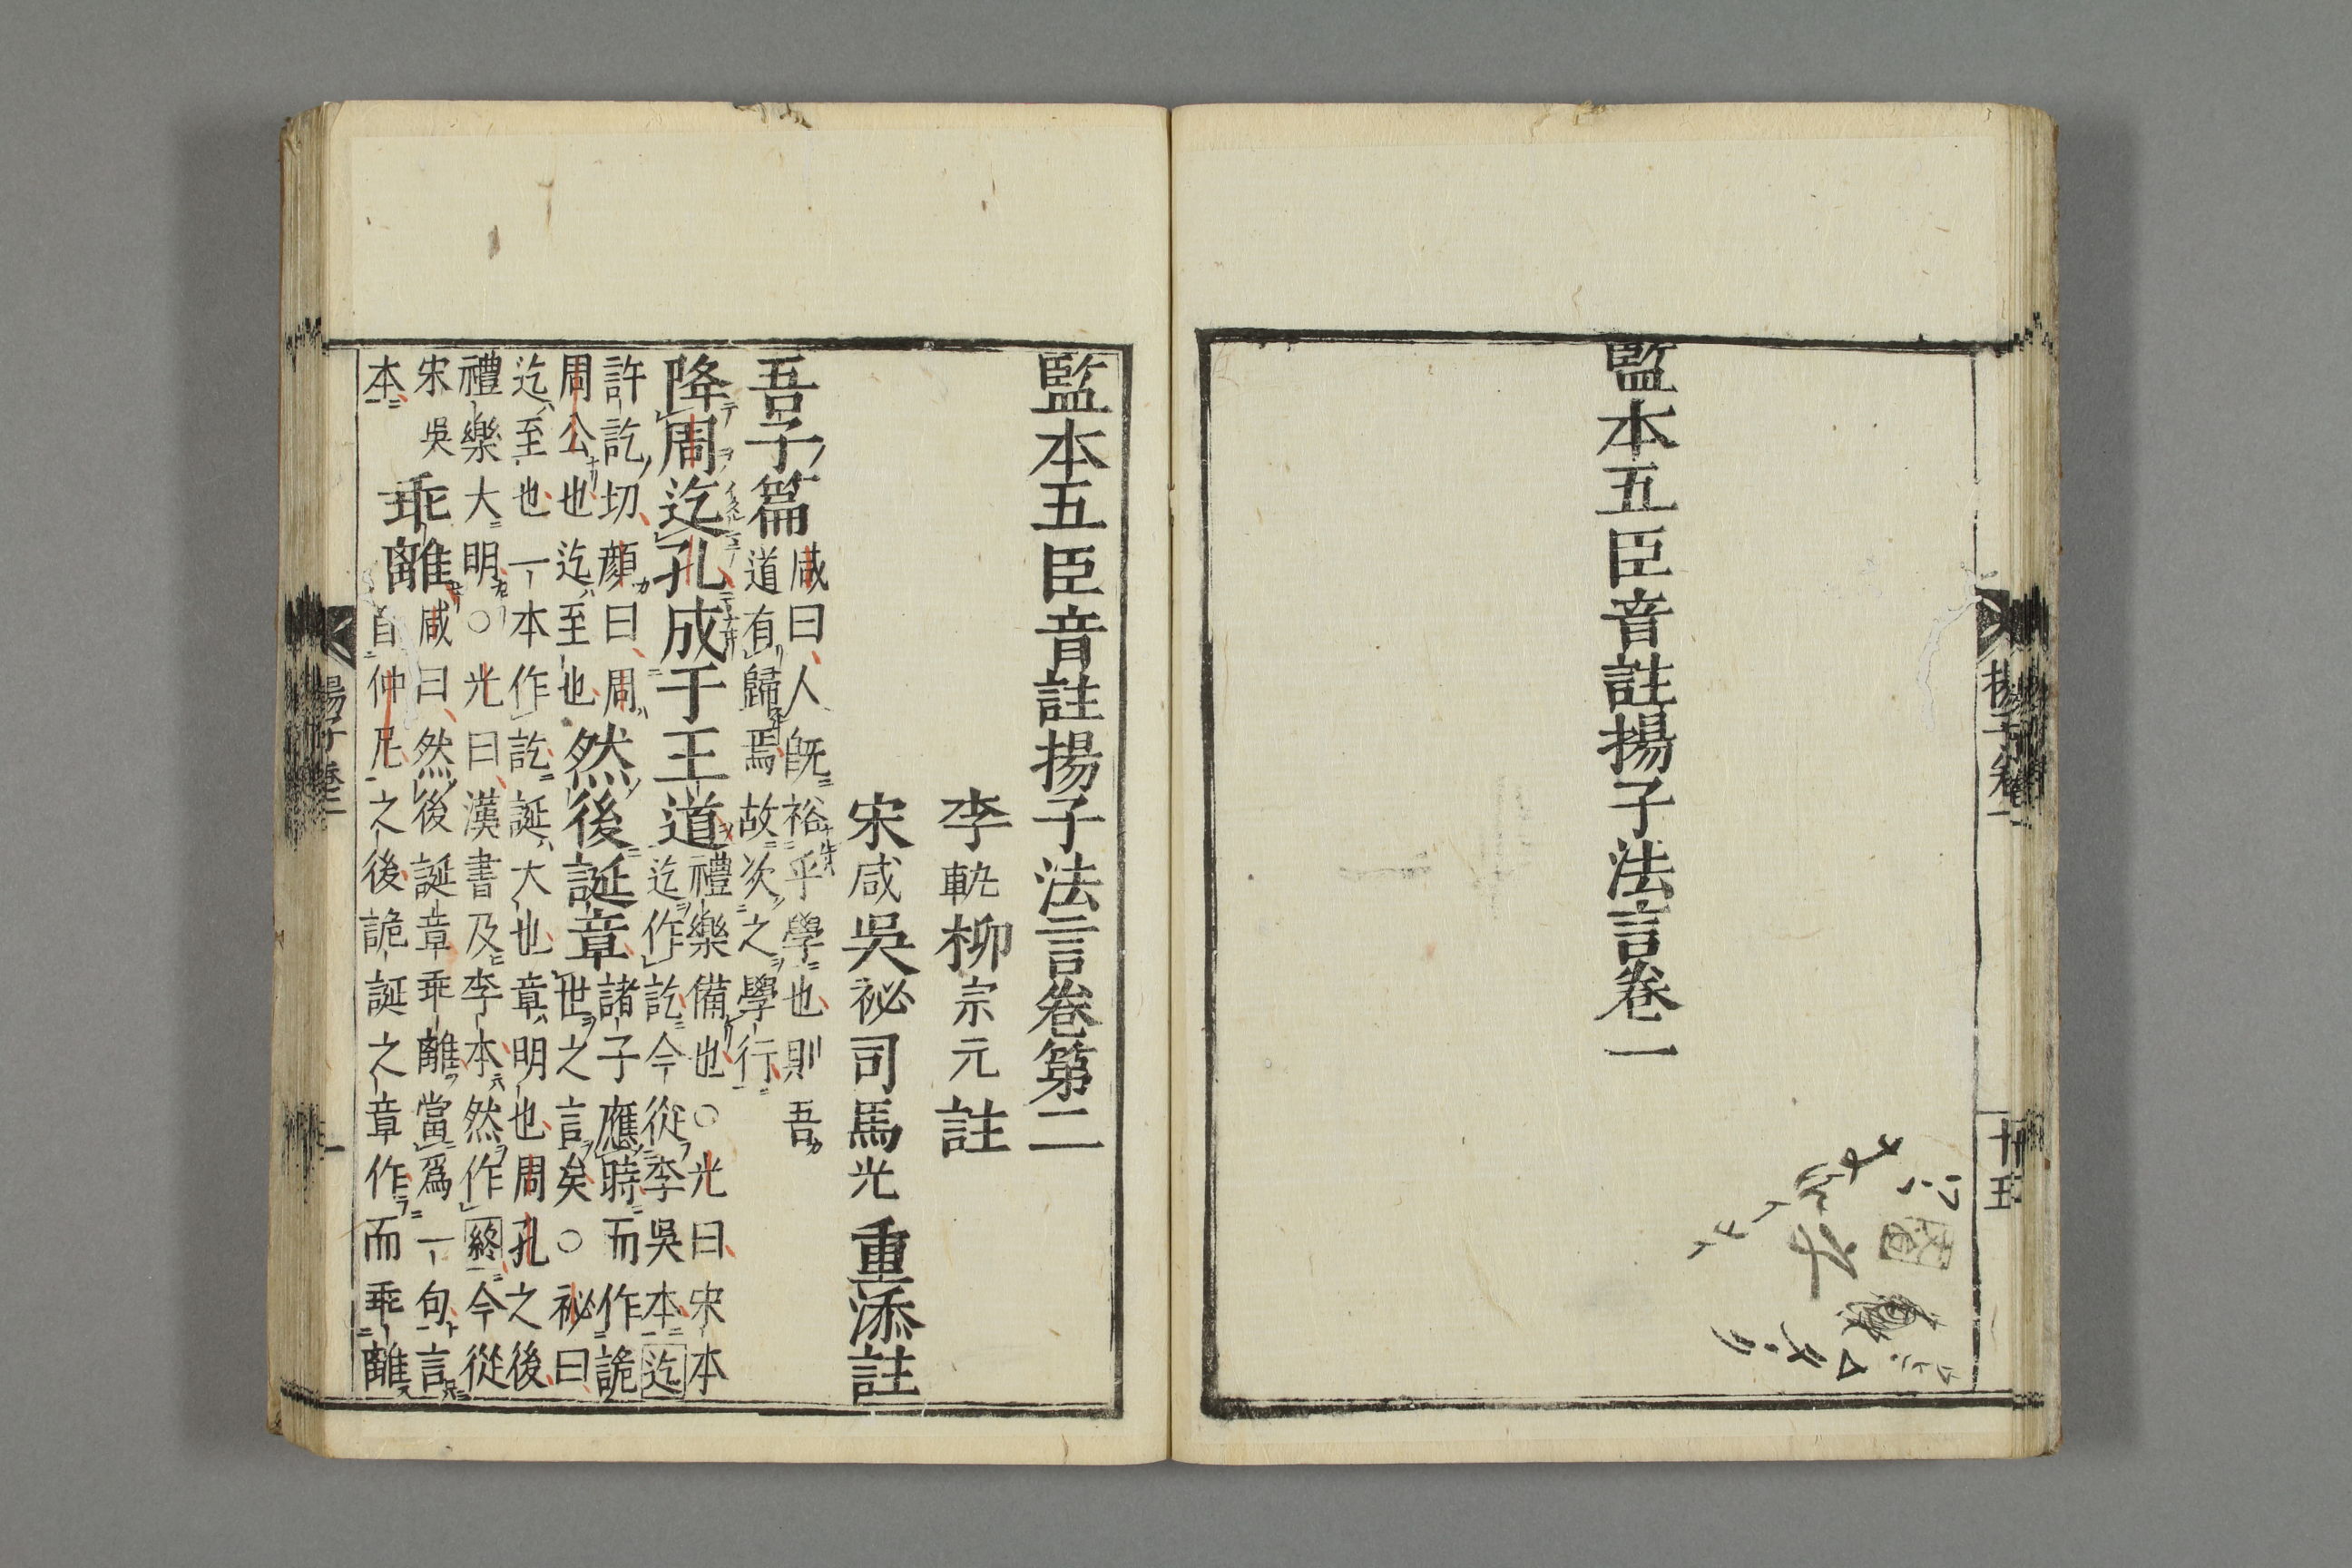 監本五臣音註揚子法言卷一
十五
監本五臣音註揚子法言卷第二
李軌柳宗元註
宋咸吳祕司馬光重添註
吾子篇
咸曰人旣裕乎學也則吾
道有歸焉故次之學行
降周迄孔成于王道
禮樂備也○光曰宋本
迄作訖今從李吳本迄
許訖切顏曰周
周公也迄至也
然後誕章
諸子應時而作詭
世之言矣○祕曰
迄至也一本作訖誕大也章明也周孔之後
禮樂大明○光曰漢書及李本然作終今從
宋吳
本
乖離
咸曰然後誕章乖離當爲一句言
自仲尼之後詭誕之章作而乖離